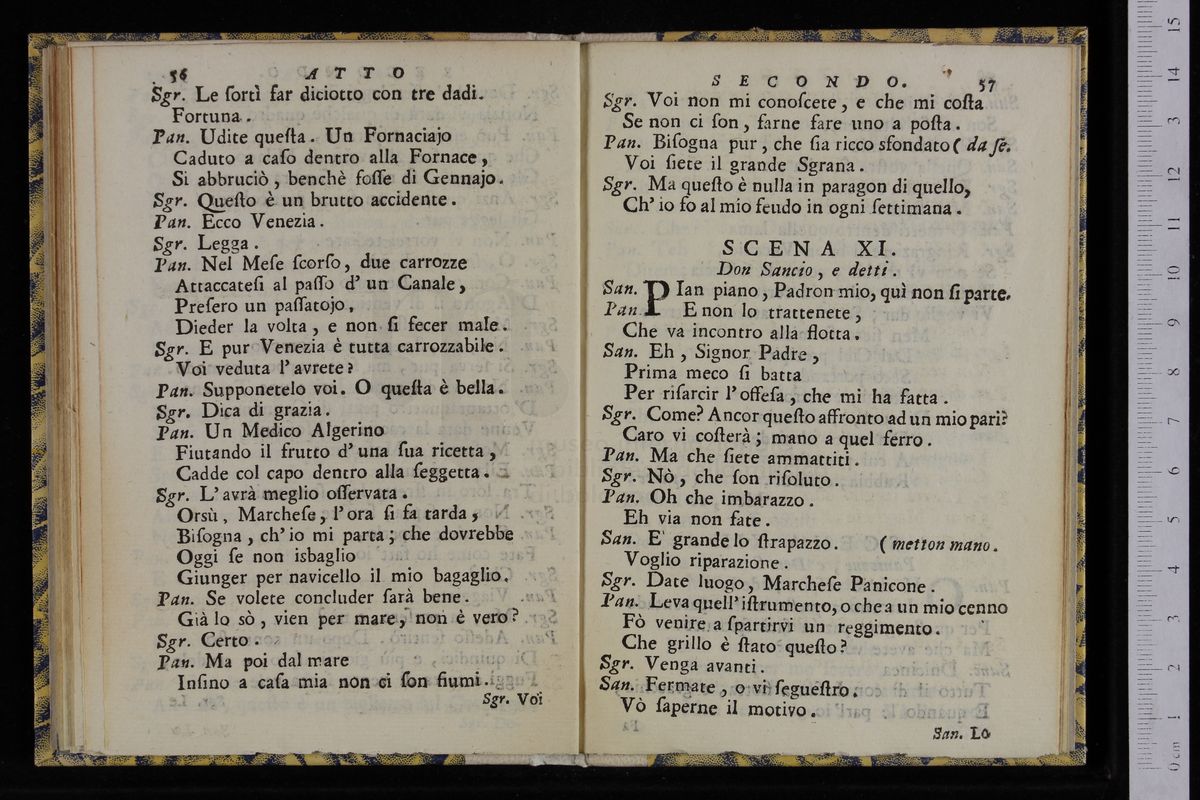 56 ATTO
Sgr. Le ſortì far diciotto con tre dadi.
Fortuna.
Pan. Udite queſta. Un Fornaciajo
Caduto a caſo dentro alla Fornace,
Si abbruciò, benchè foſſe di Gennajo.
Sgr. Queſto è un brutto accidente.
Pan. Ecco Venezia.
Sgr. Legga.
Pan. Nel Meſe ſcorſo, due carrozze
Attaccateſi al paſſo d' un Canale,
Preſero un paſſatojo,
Dieder la volta, e non ſi fecer male.
Sgr. E pur Venezia è tutta carrozzabile.
Voi veduta l' avrete?
Pan. Supponetelo voi. O queſta è bella.
Sgr. Dica di grazia.
Pan. Un Medico Algerino
Fiutando il frutto d' una ſua ricetta,
Cadde col capo dentro alla ſeggetta.
Sgr. L' avrà meglio oſſervata.
Orsù, Marcheſe, l' ora ſi fa tarda,
Biſogna, ch' io mi parta; che dovrebbe
Oggi ſe non isbaglio
Giunger per navicello il mio bagaglio.
Pan. Se volete concluder ſarà bene.
Già lo sò, vien per mare, non è vero?
Sgr. Certo.
Pan. Ma poi dal mare
Inſino a caſa mia non ci ſon fiumi.
Sgr. Voi
SECONDO. 57
Sgr. Voi non mi conoſcete, e che mi coſta
Se non ci ſon, farne fare uno a poſta.
Pan. Biſogna pur, che ſia ricco sfondato (da ſè.
Voi ſiete il grande Sgrana.
Sgr. Ma queſto è nulla in paragon di quello,
Ch' io fo al mio feudo in ogni ſettimana.
SCENA XI.
Don Sancio, e detti.
San. PIan piano, Padron mio, quì non ſi parte.
Pan. E non lo trattenete,
Che va incontro alla flotta.
San. Eh, Signor Padre,
Prima meco ſi batta
Per riſarcir l' offeſa, che mi ha fatta.
Sgr. Come? Ancor queſto affronto ad un mio pari?
Caro vi coſterà; mano a quel ferro.
Pan. Ma che ſiete ammattiti.
Sgr. Nò, che ſon riſoluto.
Pan. Oh che imbarazzo.
Eh via non fate.
San. E' grande lo ſtrapazzo. (metton mano.
Voglio riparazione.
Sgr. Date luogo, Marcheſe Panicone.
Pan. Leva quell' iſtrumento, o che a un mio cenno
Fò venire a ſpartirvi un reggimento.
Che grillo è ſtato queſto?
Sgr. Venga avanti.
San. Fermate, o vi ſequeſtro.
Vò ſaperne il motivo.
San. Lo
0 cm 1 2 3 4 5 6 7 8 9 10 11 12 13 14 15